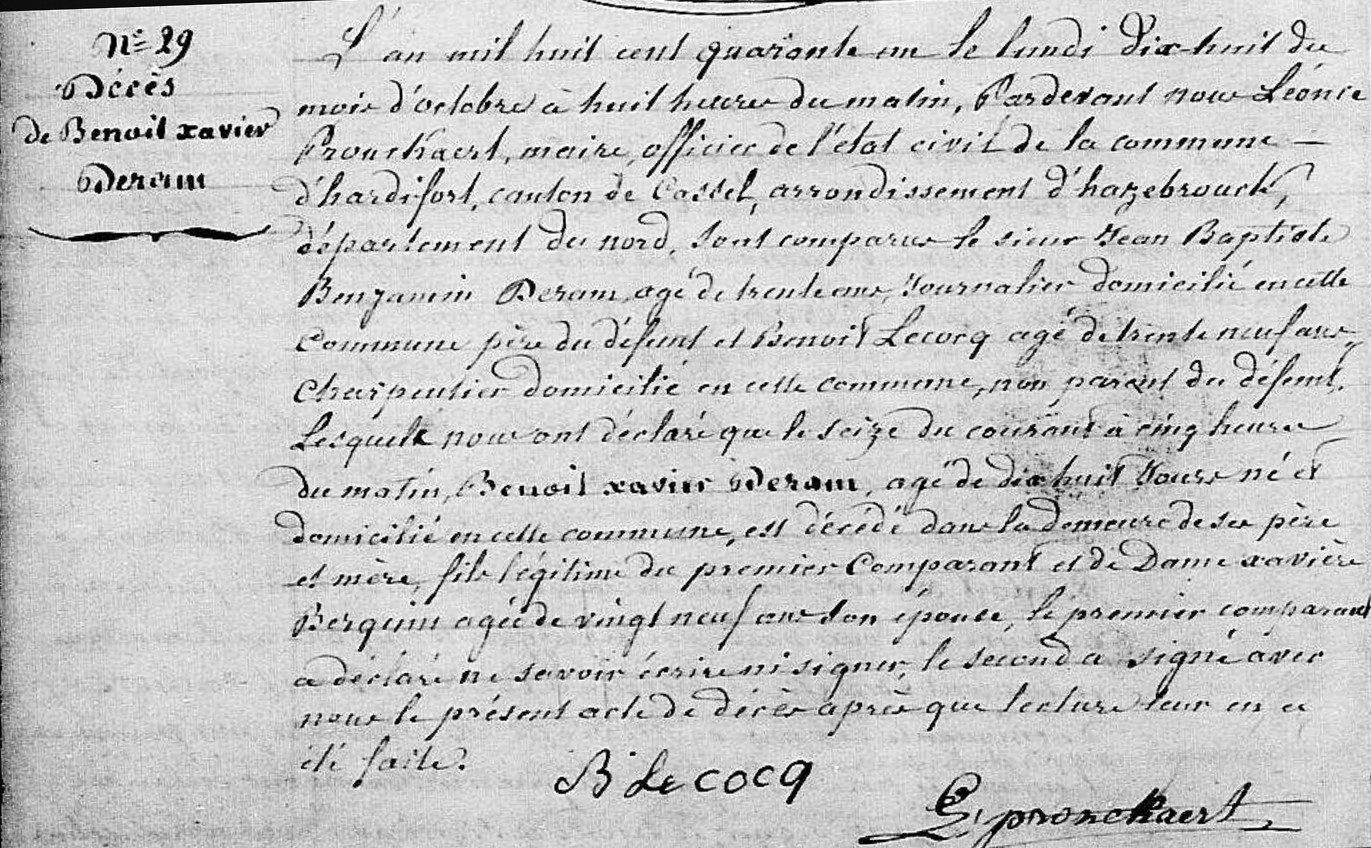 N° 29
Décès
de Benoit xavier
Deram
L'an mil huit cent quarante un le lundi dix-huit du
mois d'octobre à huit heures du matin, Pardevant nous Léonce
Pronckaert, maire, officier de l'état civil de la commune —
d'hardifort, canton de Cassel, arrondissement d'hazebrouck,
département du nord, sont comparus le sieur Jean Baptiste
Benjamin Deram, agé de trente ans, Journalier domicilié en cette
Commune père du défunt et Benoit Lecocq agé de trente neuf ans,
Charpentier domicilié en cette commune, non parent du défunt,
Lesquels nous ont déclaré que le seize du courant à cinq heures
du matin, Benoit xavier Deram, agé de dix huit Jours né et
domicilié en cette commune, est décédé dans la demeure de ses père
et mère, fils légitime du premier Comparant et de Dame xavière
Berquin agée de vingt neuf ans son épouse, le premier comparant
a déclaré ne savoir écrire ni signer, le second a signé avec
nous le présent acte de décès après que lecture leur en a
été faite.
B Lecocq
L. pronckaert